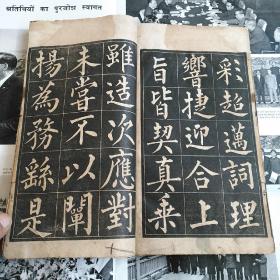 अतिथियों का पुरजोश स्वागत
彩超邁詞理
響捷迎合上
旨皆契真乗
雖造次應對
未嘗不以闡
揚為務繇是